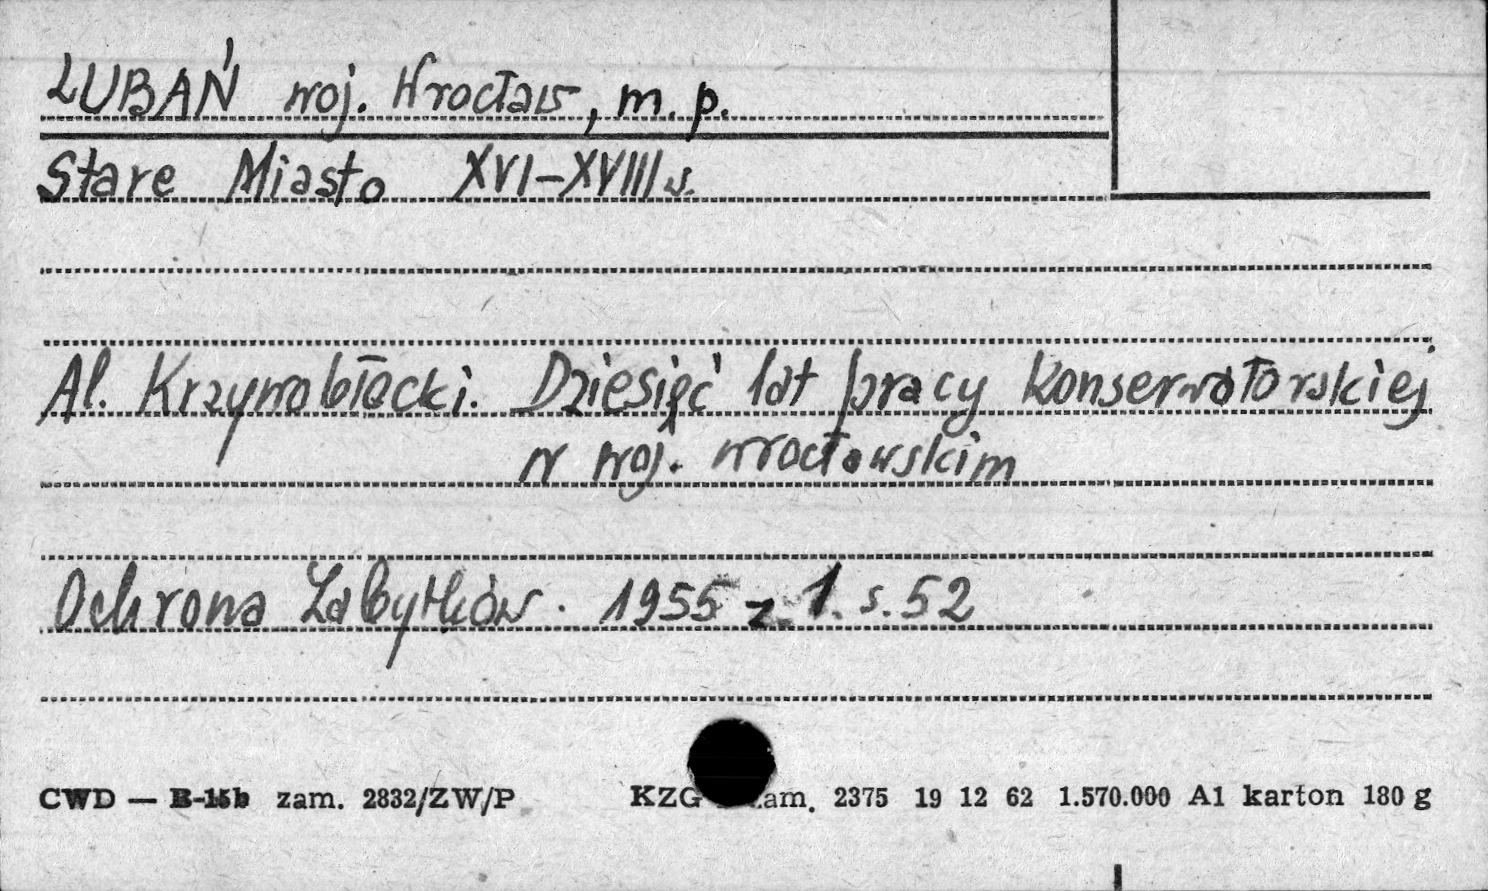 LUBAŃ woj. Wrocław, m. p.
Stare Miasto XVI-XVIII w.
Al. Krzywobłocki. Dziesięć lat pracy konserwatorskiej
w woj. wrocławskim
Ochrona Zabytków. 1955 z. 1. s. 52
CWD — B-15b zam. 2832/ZW/P KZG zam. 2375 19 12 62 1.570.000 A1 karton 180 g